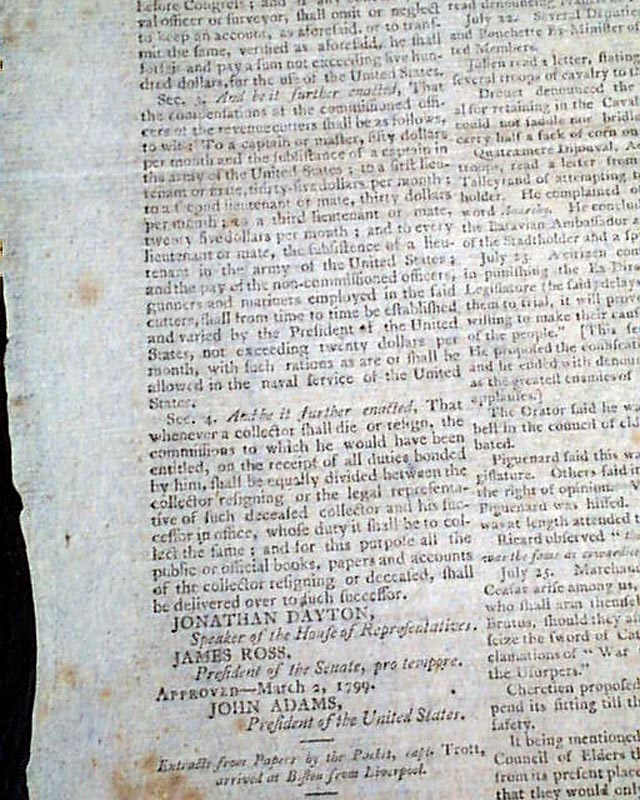 before Congress; and if any
val officer or surveyor, ſhall omit or neglect
to keep an account, as aforeſaid, or to tranſ-
mit the ſame, verified as aforeſaid, he ſhall
forfeit and pay a ſum not exceeding five hun-
dred dollars, for the uſe of the United States.
Sec. 3. And be it further enacted, That
the compenſations of the commiſſioned offi-
cers of the revenue cutters ſhall be as follows,
to wit: To a captain or maſter, fifty dollars
per month and the ſubſiſtance of a captain in
the army of the United States; to a firſt lieu-
tenant or mate, thirty-five dollars per month;
to a ſecond lieutenant or mate, thirty dollars
per month; to a third lieutenant or mate,
twenty five dollars per month; and to every
lieutenant or mate, the ſubſiſtence of a lieu-
tenant in the army of the United States;
and the pay of the non-commiſſioned officers,
gunners and mariners employed in the ſaid
cutters, ſhall from time to time be eſtabliſhed
and varied by the Preſident of the United
States, not exceeding twenty dollars per
month, with ſuch rations as are or ſhall be
allowed in the naval ſervice of the United
States.
Sec. 4. And be it further enacted, That
whenever a collector ſhall die or reſign, the
commiſſions to which he would have been
entitled, on the receipt of all duties bonded
by him, ſhall be equally divided between the
collector reſigning or the legal repreſenta-
tive of ſuch deceaſed collector and his ſuc-
ceſſor in office, whoſe duty it ſhall be to col-
lect the ſame; and for this purpoſe all the
public or official books, papers and accounts
of the collector reſigning or deceaſed, ſhall
be delivered over to ſuch ſucceſſor.
JONATHAN DAYTON,
Speaker of the Houſe of Repreſentatives.
JAMES ROSS,
Preſident of the Senate, pro tempore.
APPROVED—March 2, 1799.
JOHN ADAMS,
Preſident of the United States.
Extracts from Papers by the Packet, capt. Trott,
arrived at Boſton from Liverpool.
read denouncing
July 22. Several
and Ponchette Ex-Miniſter
ted Members.
read a letter, ſtating
ſeveral troops of cavalry to
Drouet denounced the
al for retaining in the
could not ſaddle nor
carry half a ſack of corn
Quatramere Diſjonval,
troops, read a letter from
Talleyrand of attempting
holder. He complained
word He
the Batavian Ambaſſador
of the Stadtholder and a
July 23. A citizen
in puniſhing the Ex
Legiſlature (he ſaid) delay
them to trial, it will
willing to make their
of the people." [This
He propoſed the
and he ended with
as the greateſt enemies of
applauſes.]
The Orator ſaid he
bell in the council of
bated.
Piguenard ſaid this
giſlature. Others ſaid
the right of opinion.
Piguenard was hiſſed.
was at length attended
Ricard obſerved
was the ſame as
July 25.
Ceſar ariſe among us,
who ſhall arm
Brutus, ſhould they
ſeize the ſword of
clamations of " War
the Uſurpers."
Cheretien propoſed
pend its ſitting till
ſafety.
It being mentioned
Council of Elders
from its preſent place
that they would